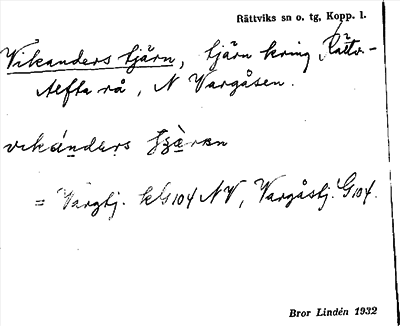 Rättviks sn o. tg, Kopp. l.
Vikanders tjärn, tjärn kring Rättv.-
Alfta rå, N Vargåsen.
vikánders
= Vargtj. kG104 NV, Vargåstj. G104.
Bror Lindén 1932